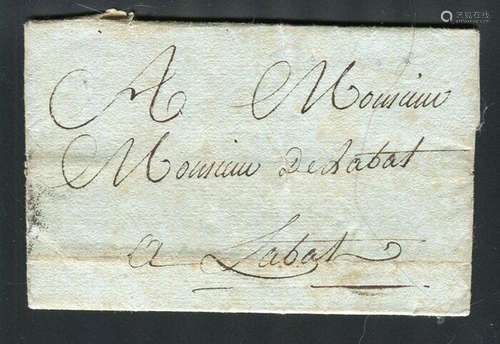 A Monsieur
Monsieur De Labat
a Labat